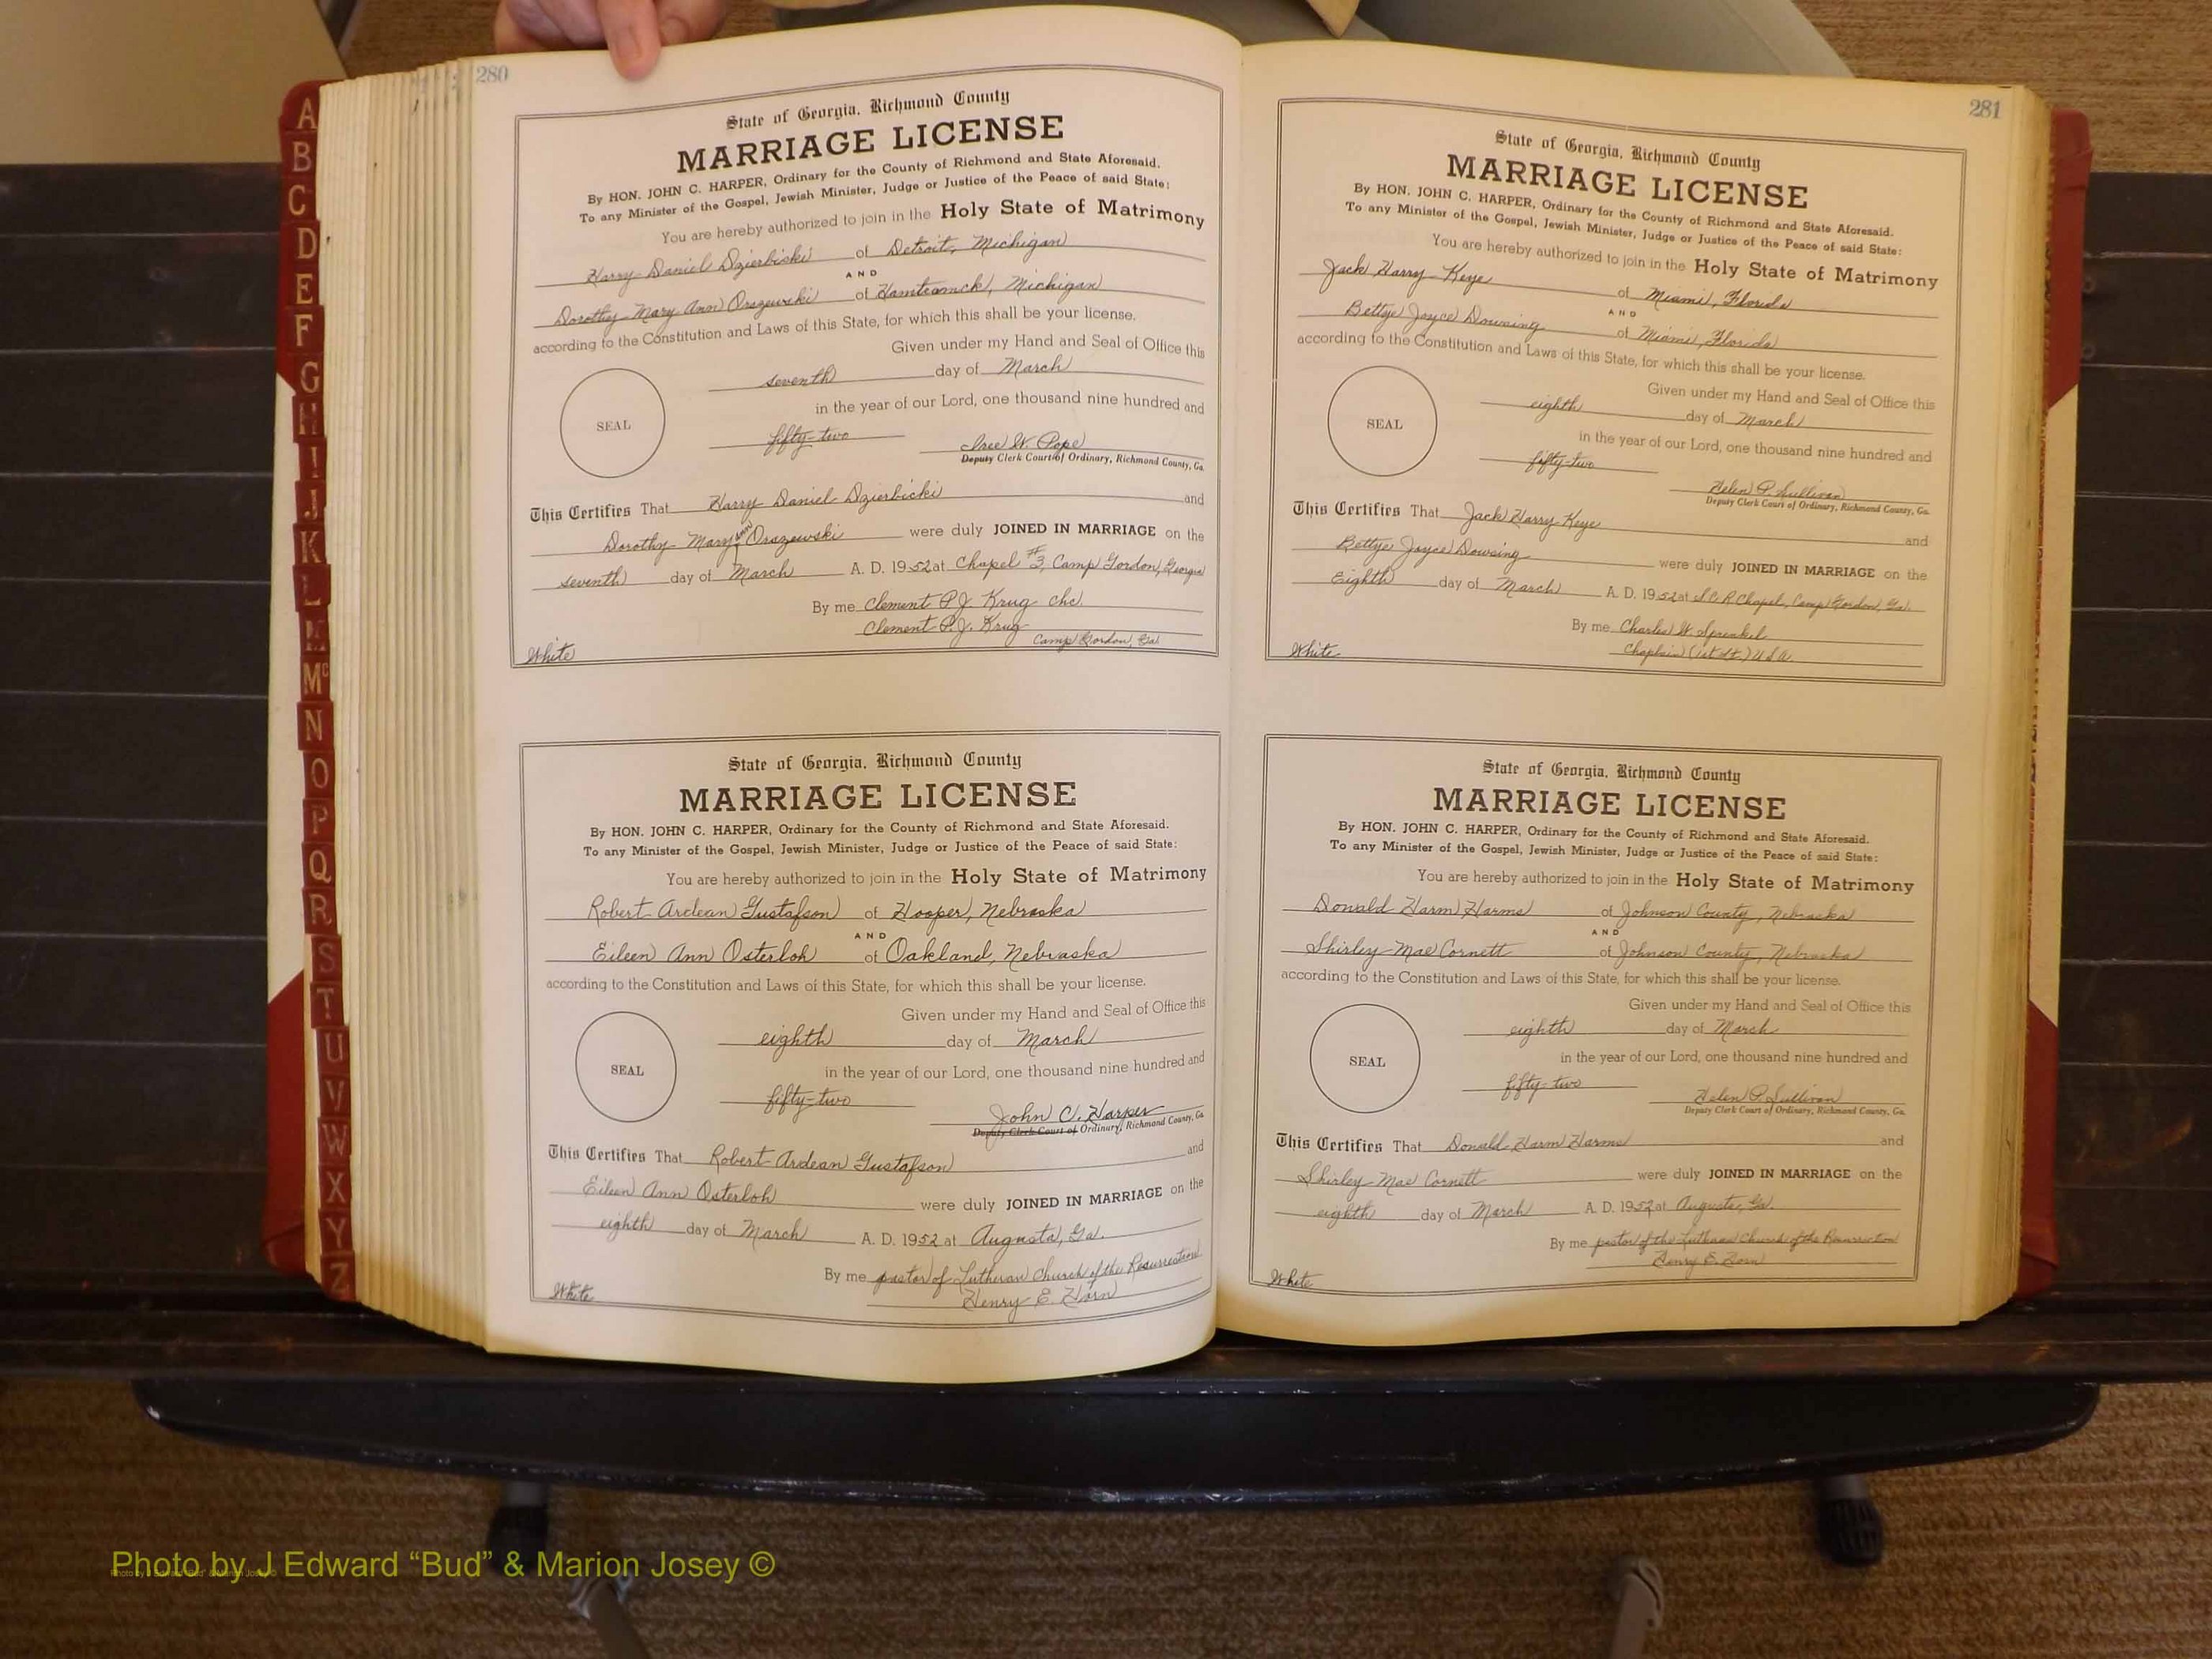 280
State of Georgia, Richmond County
MARRIAGE LICENSE
By HON. JOHN C. HARPER, Ordinary for the County of Richmond and State Aforesaid.
To any Minister of the Gospel, Jewish Minister, Judge or Justice of the Peace of said State:
You are hereby authorized to join in the Holy State of Matrimony
Harry Daniel Dzierbicki of Detroit, Michigan
AND
Dorothy Mary Ann Orszewski of Hamtramck, Michigan
according to the Constitution and Laws of this State, for which this shall be your license.
Given under my Hand and Seal of Office this
seventh day of March
in the year of our Lord, one thousand nine hundred and
SEAL
fifty-two W. Pope
Deputy Clerk Court of Ordinary, Richmond County, Ga.
This Certifies That Harry Daniel Dzierbicki and
Dorothy Mary Ann Orszewski were duly JOINED IN MARRIAGE on the
seventh day of March A. D. 1952 at Chapel #3, Camp Gordon, Georgia
By me Clement P. J. Krug chc.
Clement P. J. Krug
Camp Gordon, Ga.
White
State of Georgia, Richmond County
MARRIAGE LICENSE
By HON. JOHN C. HARPER, Ordinary for the County of Richmond and State Aforesaid.
To any Minister of the Gospel, Jewish Minister, Judge or Justice of the Peace of said State:
You are hereby authorized to join in the Holy State of Matrimony
Robert Ardean Gustafson of Hooper, Nebraska
AND
Eileen Ann Osterloh of Oakland, Nebraska
according to the Constitution and Laws of this State, for which this shall be your license.
Given under my Hand and Seal of Office this
eighth day of March
SEAL
in the year of our Lord, one thousand nine hundred and
fifty-two John C. Harper
Deputy Clerk Court of Ordinary, Richmond County, Ga.
This Certifies That Robert Ardean Gustafson and
Eileen Ann Osterloh were duly JOINED IN MARRIAGE on the
eighth day of March A. D. 1952 at Augusta, Ga.
By me pastor of Lutheran Church of the Resurrection
Henry E. Horn
White
281
State of Georgia, Richmond County
MARRIAGE LICENSE
By HON. JOHN C. HARPER, Ordinary for the County of Richmond and State Aforesaid.
To any Minister of the Gospel, Jewish Minister, Judge or Justice of the Peace of said State:
You are hereby authorized to join in the Holy State of Matrimony
Jack Harry Keye of Miami, Florida
AND
Bettye Joyce Dowsing of Miami, Florida
according to the Constitution and Laws of this State, for which this shall be your license.
Given under my Hand and Seal of Office this
eighth day of March
SEAL
in the year of our Lord, one thousand nine hundred and
fifty-two Helen P. Sullivan
Deputy Clerk Court of Ordinary, Richmond County, Ga.
This Certifies That Jack Harry Keye and
Bettye Joyce Dowsing were duly JOINED IN MARRIAGE on the
Eighth day of March A. D. 1952 at Chapel, Camp Gordon, Ga.
By me Charles W. Sprenkel
Chaplain (1st Lt.) USA
White
State of Georgia, Richmond County
MARRIAGE LICENSE
By HON. JOHN C. HARPER, Ordinary for the County of Richmond and State Aforesaid.
To any Minister of the Gospel, Jewish Minister, Judge or Justice of the Peace of said State:
You are hereby authorized to join in the Holy State of Matrimony
Donald Harm Harms of Johnson County, Nebraska
AND
Shirley Mae Cornett of Johnson County, Nebraska
according to the Constitution and Laws of this State, for which this shall be your license.
Given under my Hand and Seal of Office this
eighth day of March
SEAL
in the year of our Lord, one thousand nine hundred and
fifty-two Helen P. Sullivan
Deputy Clerk Court of Ordinary, Richmond County, Ga.
This Certifies That Donald Harm Harms and
Shirley Mae Cornett were duly JOINED IN MARRIAGE on the
eighth day of March A. D. 1952 at Augusta, Ga.
By me pastor of the Lutheran Church of the Resurrection
Henry E. Horn
White
A
B
C
D
E
F
G
H
I
J
K
L
M
Mc
N
O
P
Q
R
S
T
U
V
W
X
Y
Z
Photo by J Edward “Bud” & Marion Josey ©
Photo by J Edward “Bud” & Marion Josey ©